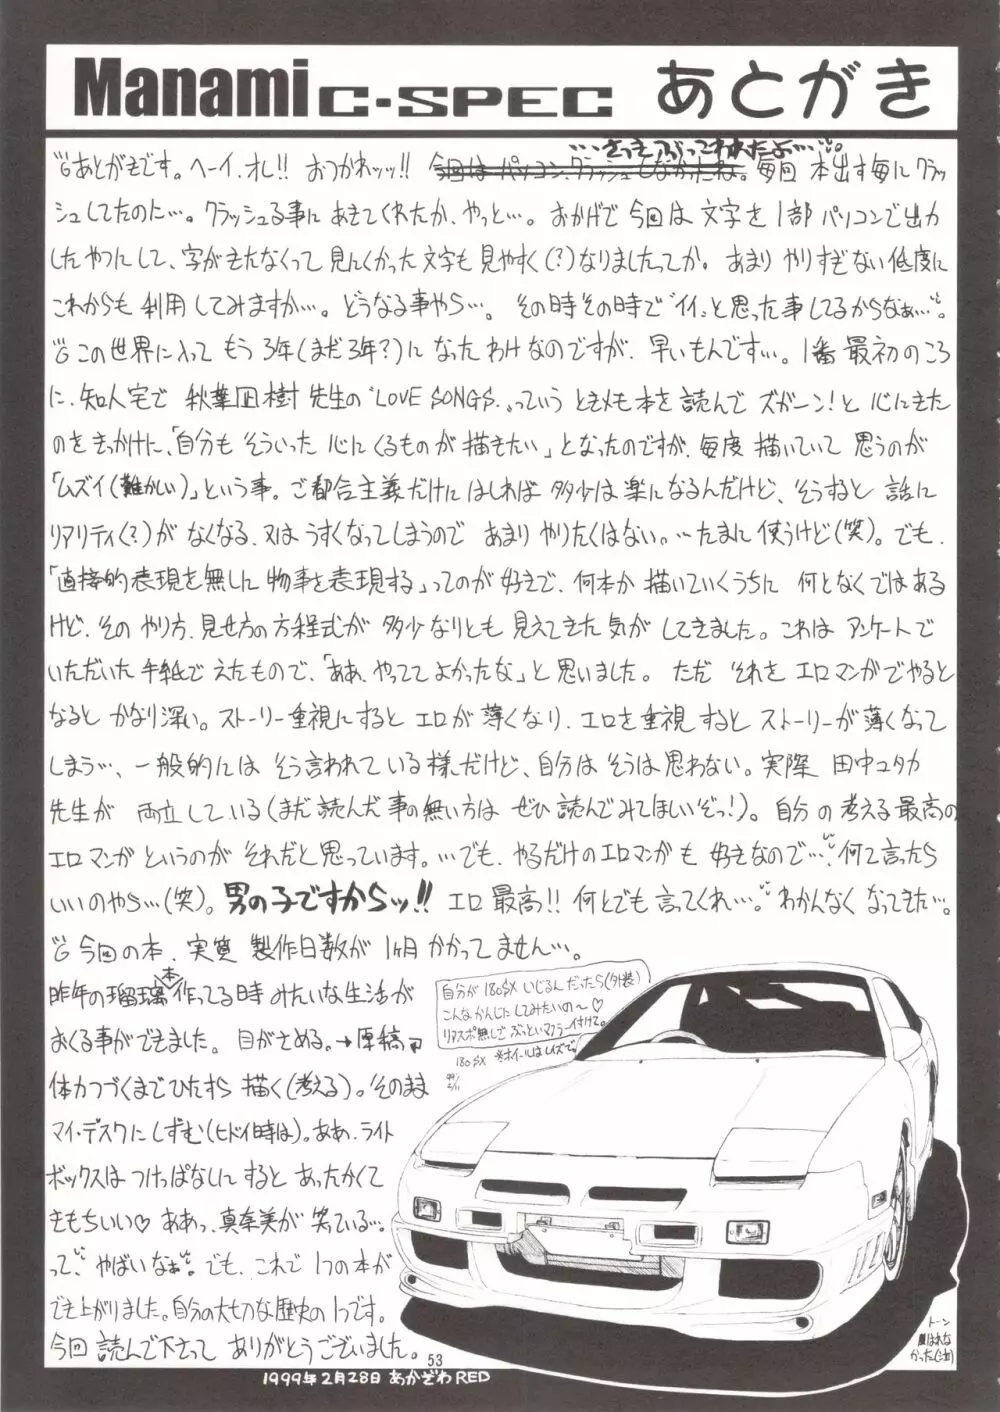 Manami C-SPEC あとがき
…さっきぶってわれたよ…。
あとがきです。ヘーイ、オレ!! おつかれッッ!! 今回はパソコン、クラッシュしなかったね。毎回 本出す毎にクラッ
シュしてたのに…。クラッシュる事に あきてくれたか、やっと…。おかげで今回は文字を1部パソコンで出力
したやつにして、字がきたなくって見にくかった文字も見やすく(?)なりましたってか。あまり やりすぎない低度に
これからも利用してみますか…。どうなる事やら…。その時その時で"イイ"と思った事してるからなぁ…。
この世界に入って もう3年(まだ3年?)に なったわけなのですが、早いもんです…。1番最初のころ
に、知人宅で 秋葉凪樹先生の"LOVE SONGS"っていう ときメモ本を読んで ズガーン!と 心にきた
のをきっかけに、「自分も そういった 心にくるものが描きたい」となったのですが、毎度 描いていて 思うのが
「ムズイ(難かしい)」という事。ご都合主義だけに はしれば 多少は楽になるんだけど、そうすると 話に
リアリティ(?)が なくなる、又は うすくなってしまうので あまり やりたくはない。…たまに使うけど(笑)。でも、
「直接的表現を無しに 物事を表現する」ってのが好きで、何本か描いていくうちに 何となくではある
けど、その やり方、見せ方の方程式が 多少なりとも 見えてきた気が してきました。これは アンケートで
いただいた手紙で えたもので、「ああ、やっててよかったな」と思いました。ただ それを エロマンガでやると
なると かなり深い。ストーリー重視にすると エロが 薄くなり、エロを重視すると ストーリーが薄くなって
しまう…、一般的には そう言われている様だけど、自分は そうは思わない。実際 田中ユタカ
先生が 両立している(まだ読んだ事の無い方は ぜひ読んでみてほしいぞっ!)。自分の考える最高の
エロマンガというのが それだと思っています。…でも、やるだけのエロマンガも 好きなので…、何て言ったら
いいのやら…(笑)。男の子ですからッ!! エロ最高!! 何とでも言ってくれ…。わかんなく なってきた…。
今回の本、実質 製作日数が 1ヶ月かかってません…。
昨年の瑠璃本作ってる時みたいな生活が
おくる事ができました。目がさめる。→原稿→
体力つづくまでひたすら描く(考える)。そのまま
マイ・デスクにしずむ(ヒドイ時は)。ああ、ライト
ボックスは つけっぱなしにすると あったかくて
きもちいい♡ ああっ、真奈美が笑っている…。
って、やばいなぁ。でも、これで1つの本が
でき上がりました。自分の大切な歴史の1つです。
今回 読んで下さって ありがとうございました。
自分が180SXいじるんだったら(外装)
こんなかんじにしてみたいの〜♡
リアスポ無しで ぶっといマフラー付けて。
180SX ※ホイールはレイズで
99/2/11
トーン
はれな
かった(泣)
53
1999年2月28日 あかざわRED